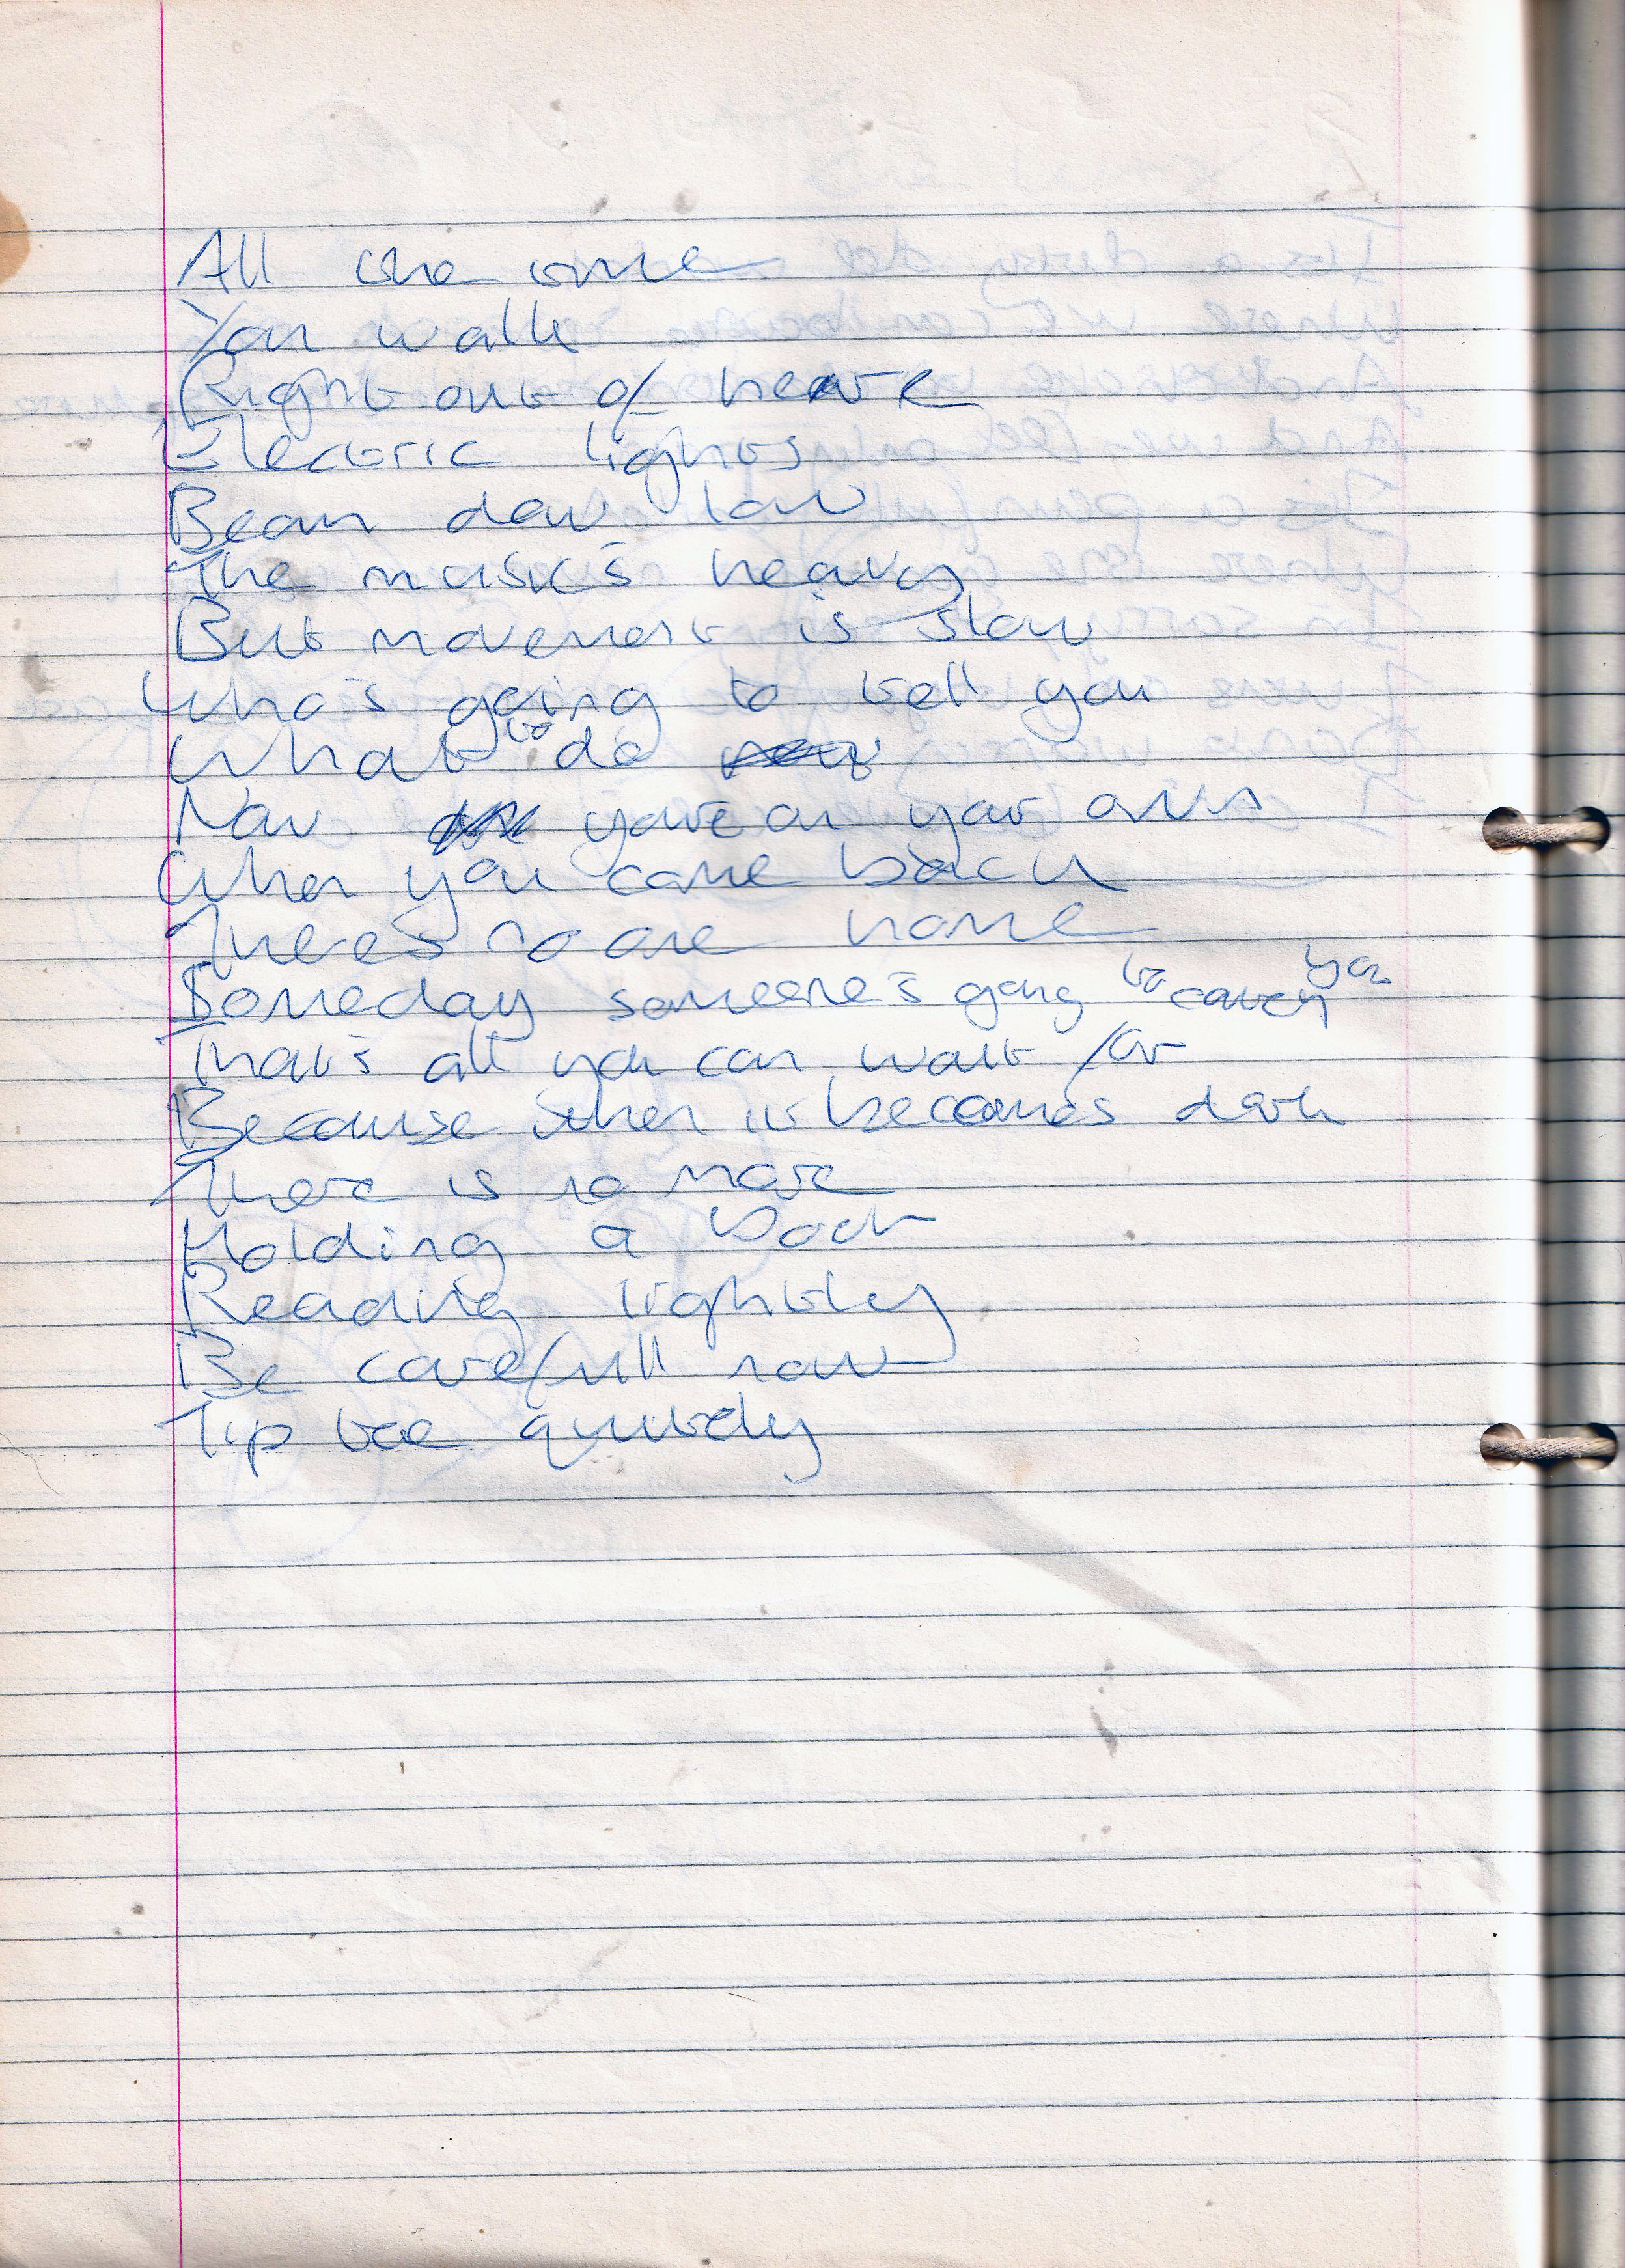 All the time
You walk
Right out of here
Electric lights
Beam down low
The musics heavy
But movement is slow
Who's going to tell you
What to do
Now your'e on your own
When you come back
Theres no one home
Someday someone's going to catch you
That's all you can wait for
Because when it becomes dark
There is no more
Holding a book
Reading lightly
Be carefull now
Tip toe quietly